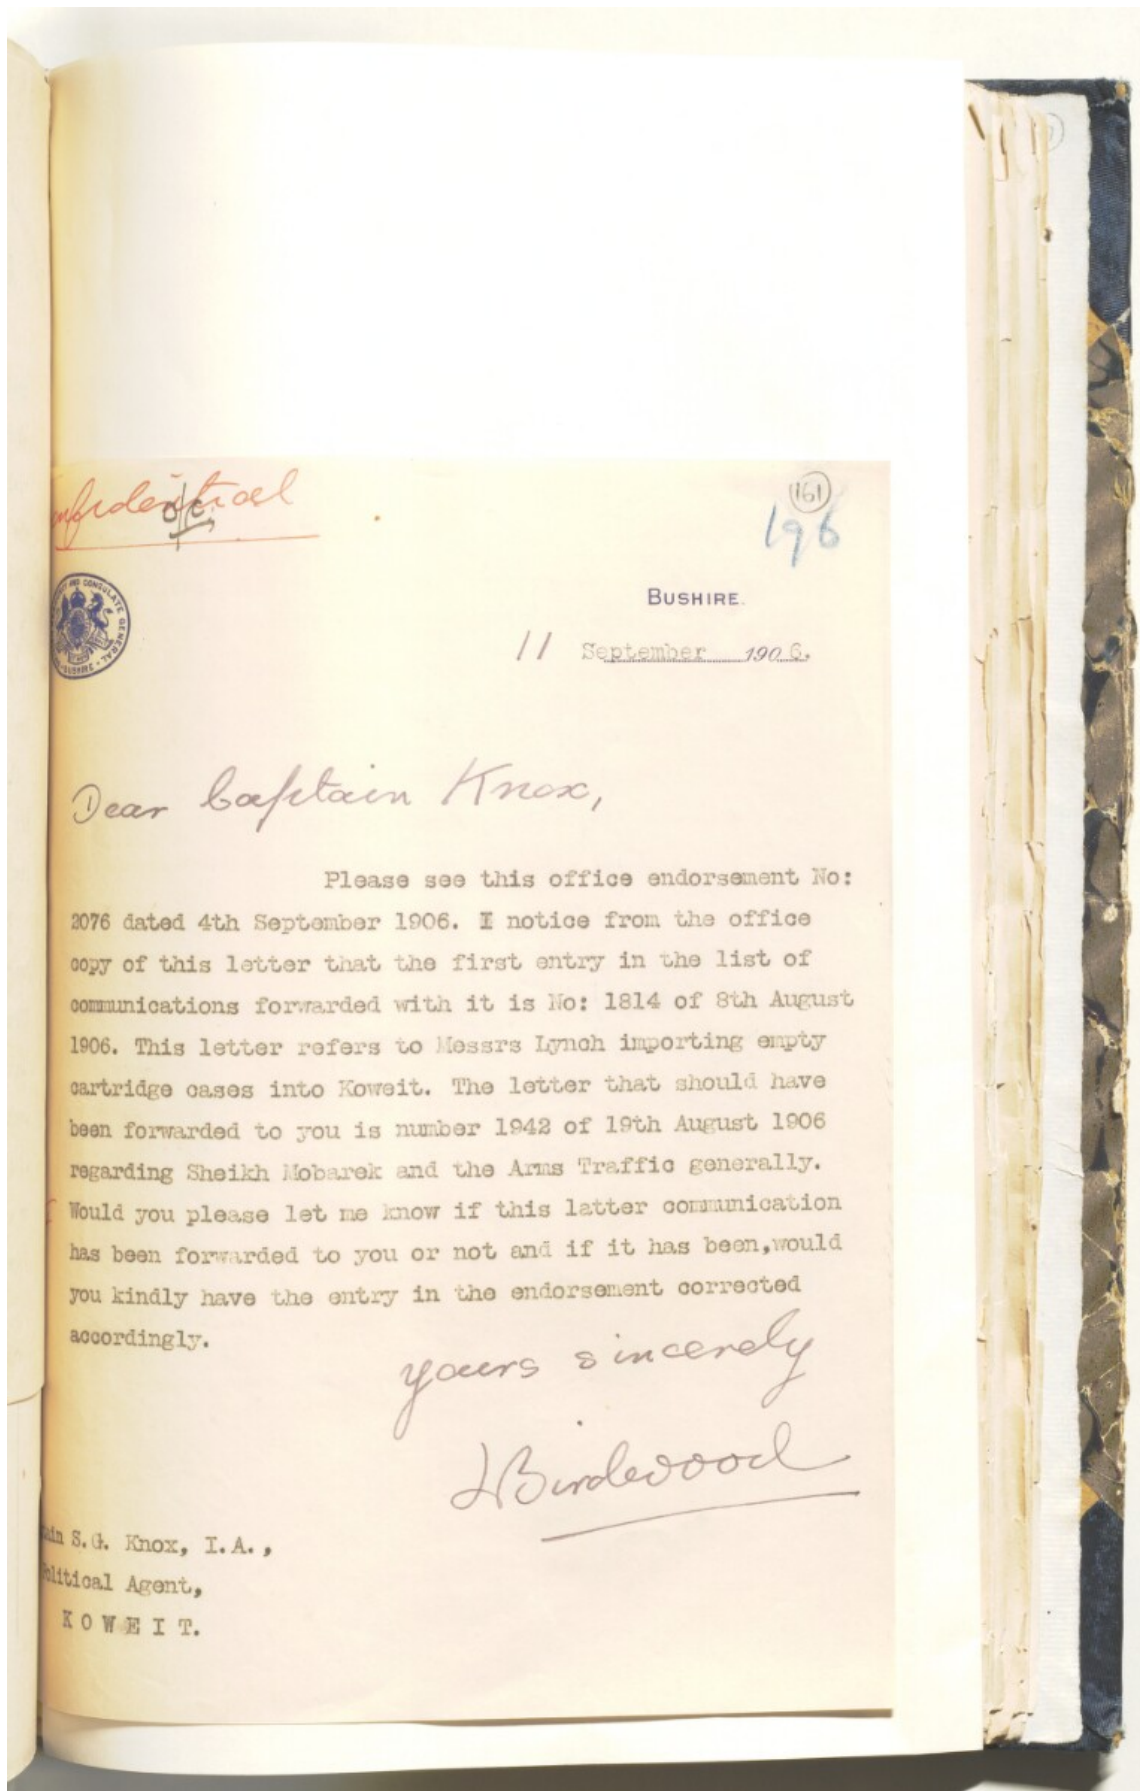 Confidential
o/c
161
196
BUSHIRE.
11 September 1906.
Dear Captain Knox,
Please see this office endorsement No:
2076 dated 4th September 1906. I notice from the office
copy of this letter that the first entry in the list of
communications forwarded with it is No: 1814 of 8th August
1906. This letter refers to Messrs Lynch importing empty
cartridge cases into Koweit. The letter that should have
been forwarded to you is number 1942 of 19th August 1906
regarding Sheikh Mobarek and the Arms Traffic generally.
Would you please let me know if this latter communication
has been forwarded to you or not and if it has been,would
you kindly have the entry in the endorsement corrected
accordingly.
yours sincerely
Birdwood
S.G. Knox, I.A.,
Political Agent,
KOWEIT.